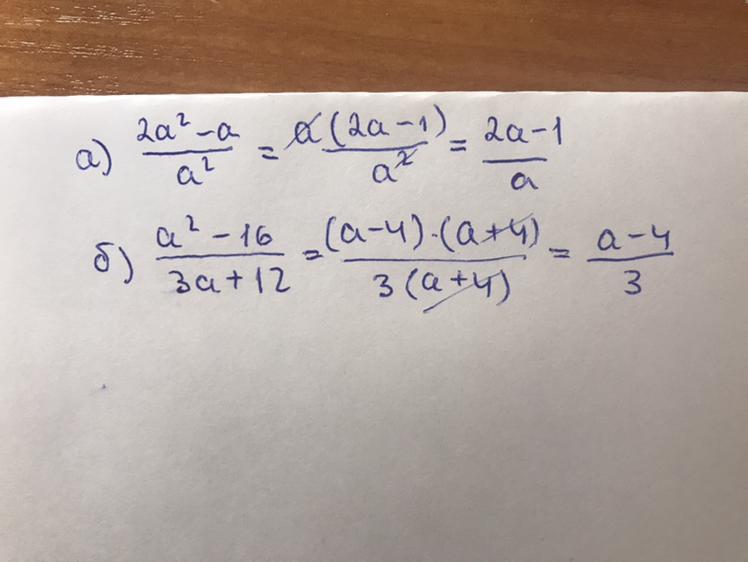 а) (2a² - a)/a² = a(2a - 1)/a² = (2a - 1)/a
б) (a² - 16)/(3a + 12) = (a - 4)·(a + 4)/3(a + 4) = (a - 4)/3